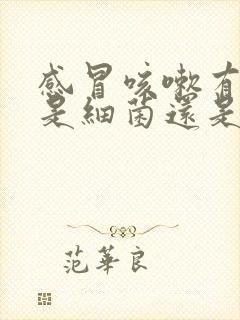 感冒咳嗽有
是細菌還是
范華良